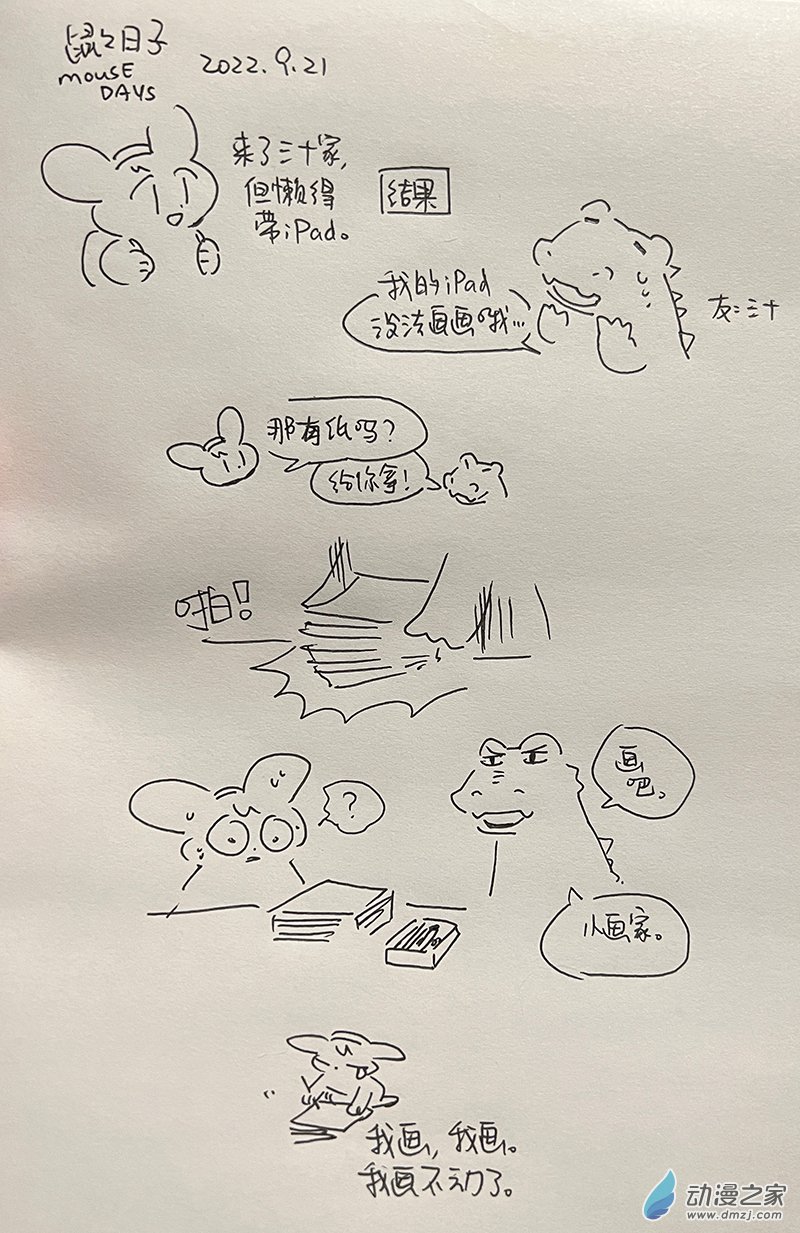 鼠鼠日子
MOUSE
DAYS
2022.9.21
来了三十家,
但懒得
带iPad。
结果
我的iPad
没法画画哦我...
友:三十
那有纸吗?
给你拿!
啪!
?
画
吧。
小画家。
我画,我画。
我画不动了。
动漫之家
www.dmzj.com